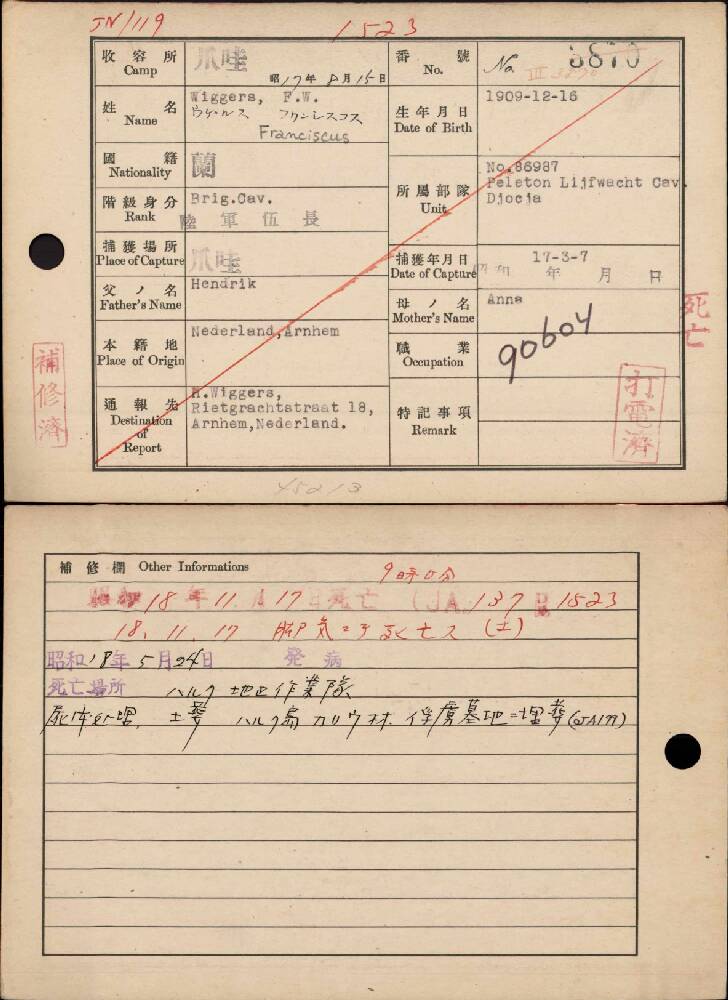 JN/119
1523
收容所 Camp 爪哇 昭17年8月15日
番號 No. No. 3870 III 3870
姓名 Name Wiggers, F.W.
Franciscus
生年月日 Date of Birth 1909-12-16
國籍 Nationality 蘭
所屬部隊 Unit No.86987
Peleton Lijfwacht Cav.
Djocja
階級身分 Rank Brig.Cav.
陸軍伍長
捕獲場所 Place of Capture 爪哇
捕獲年月日 Date of Capture 17-3-7
昭和 年 月 日
父ノ名 Father's Name Hendrik
母ノ名 Mother's Name Anna
死亡
本籍地 Place of Origin Nederland,Arnhem
職業 Occupation
90604
通報先 Destination of Report H.Wiggers,
Rietgrachtstraat 18,
Arnhem,Nederland.
特記事項 Remark
補修濟
打電濟
45213
補修欄 Other Informations
9時0分
昭和18年11月17日死亡 (JA.) 137 1523
18.11.17 脚気ニテ死亡ス (土)
昭和18年5月24日 発病
死亡場所 ハルク地区作業隊
死体処理 土葬 ハルク島カリウ林俘虜墓地ニ埋葬